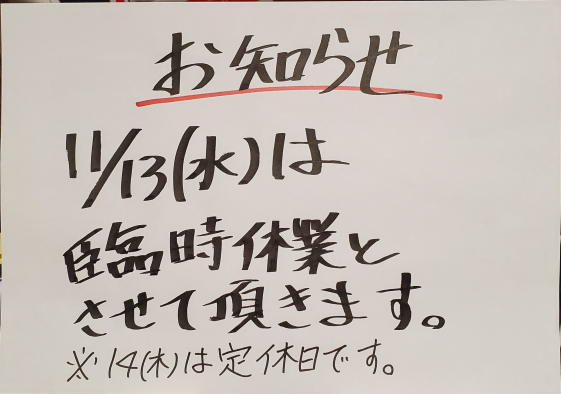 お知らせ
11/13(水)は
臨時休業と
させて頂きます。
※14(木)は定休日です。